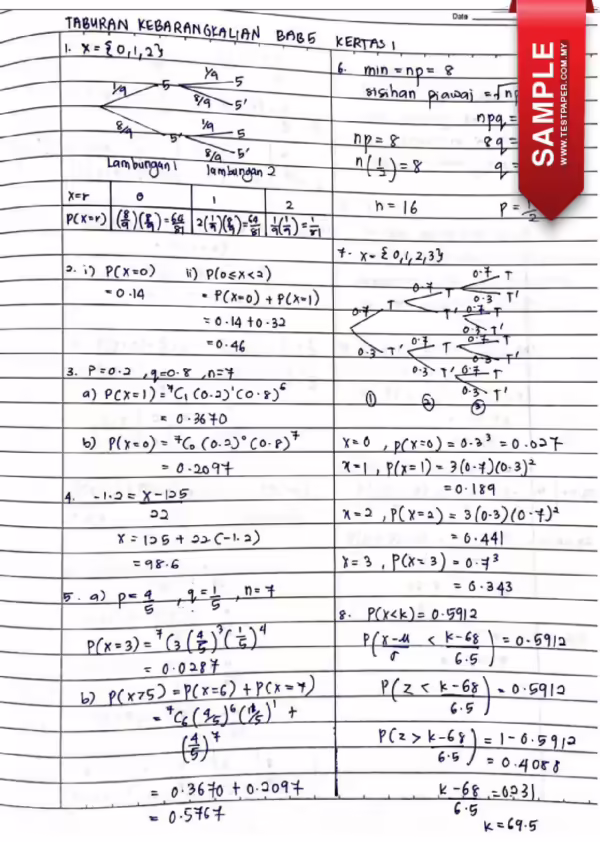 Date
TABURAN KEBARANGKALIAN BAB 5 KERTAS 1
1. X = {0,1,2}
1/9 5 1/9 5
8/9 5'
8/9 5' 1/9 5
8/9 5'
Lambungan 1 lambungan 2
X=r 0 1 2
P(X=r) (8/9)(8/9)=64/81 2(1/9)(8/9)= 1/9(1/9)=1/81
2. i) P(X=0) ii) P(0≤X<2)
= 0.14 = P(X=0) + P(X=1)
= 0.14 + 0.32
= 0.46
3. P=0.2 , q=0.8 , n=7
a) P(X=1) = ⁷C₁ (0.2)¹ (0.8)⁶
= 0.3670
b) P(X=0) = ⁷C₀ (0.2)⁰ (0.8)⁷
= 0.2097
4. -1.2 = X-125/22
X = 125 + 22(-1.2)
= 98.6
5. a) p=4/5 , q=1/5 , n=7
P(X=3) = ⁷C₃ (4/5)³ (1/5)⁴
= 0.0287
b) P(X>5) = P(X=6) + P(X=7)
= ⁷C₆ (4/5)⁶ (1/5)¹ +
(4/5)⁷
= 0.3670 + 0.2097
= 0.5767
6. min = np = 8
sisihan piawai = √np
npq =
np = 8 8q =
n(1/2) = 8 q =
n = 16 p = 1/2
7. X = {0,1,2,3}
0.7 T 0.7 T 0.7 T
0.3 T'
0.3 T' 0.7 T
0.3 T'
0.3 T' 0.7 T 0.7 T
0.3 T'
0.3 T' 0.7 T
0.3 T'
① ② ③
X=0 , P(X=0) = 0.3³ = 0.027
X=1 , P(X=1) = 3(0.7)(0.3)²
= 0.189
X=2 , P(X=2) = 3(0.3)(0.7)²
= 0.441
X=3 , P(X=3) = 0.7³
= 0.343
8. P(X<k) = 0.5912
P(X-μ/σ < k-68/6.5) = 0.5912
P(z < k-68/6.5) = 0.5912
P(z > k-68/6.5) = 1-0.5912
= 0.4088
k-68/6.5 = 0.231
k = 69.5
SAMPLE
WWW.TESTPAPER.COM.MY